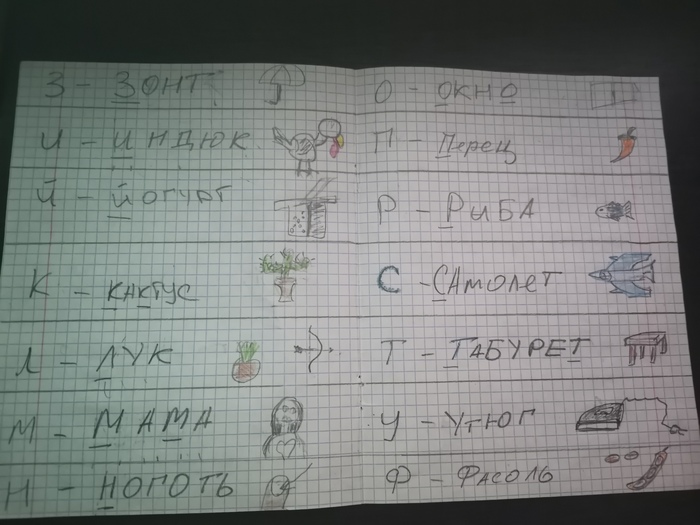 З - ЗОНТ
И - ИНДЮК
Й - ЙОГУРТ
К - КАКТУС
Л - ЛУК
М - МАМА
Н - НОГОТЬ
О - ОКНО
П - Перец
Р - РЫБА
С - САмолЕТ
Т - ТАБУРЕТ
У - УТЮГ
Ф - ФАСОЛЬ